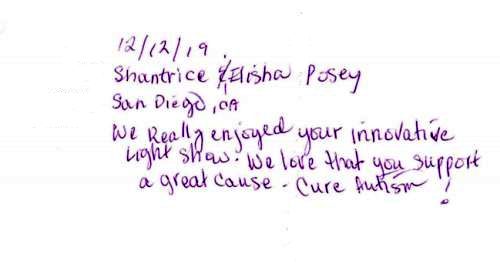 12/12/19.
Shantrice & Elisha Posey
San Diego, CA
We Really enjoyed your innovative
Light Show. We love that you support
a great cause - Cure Autism !